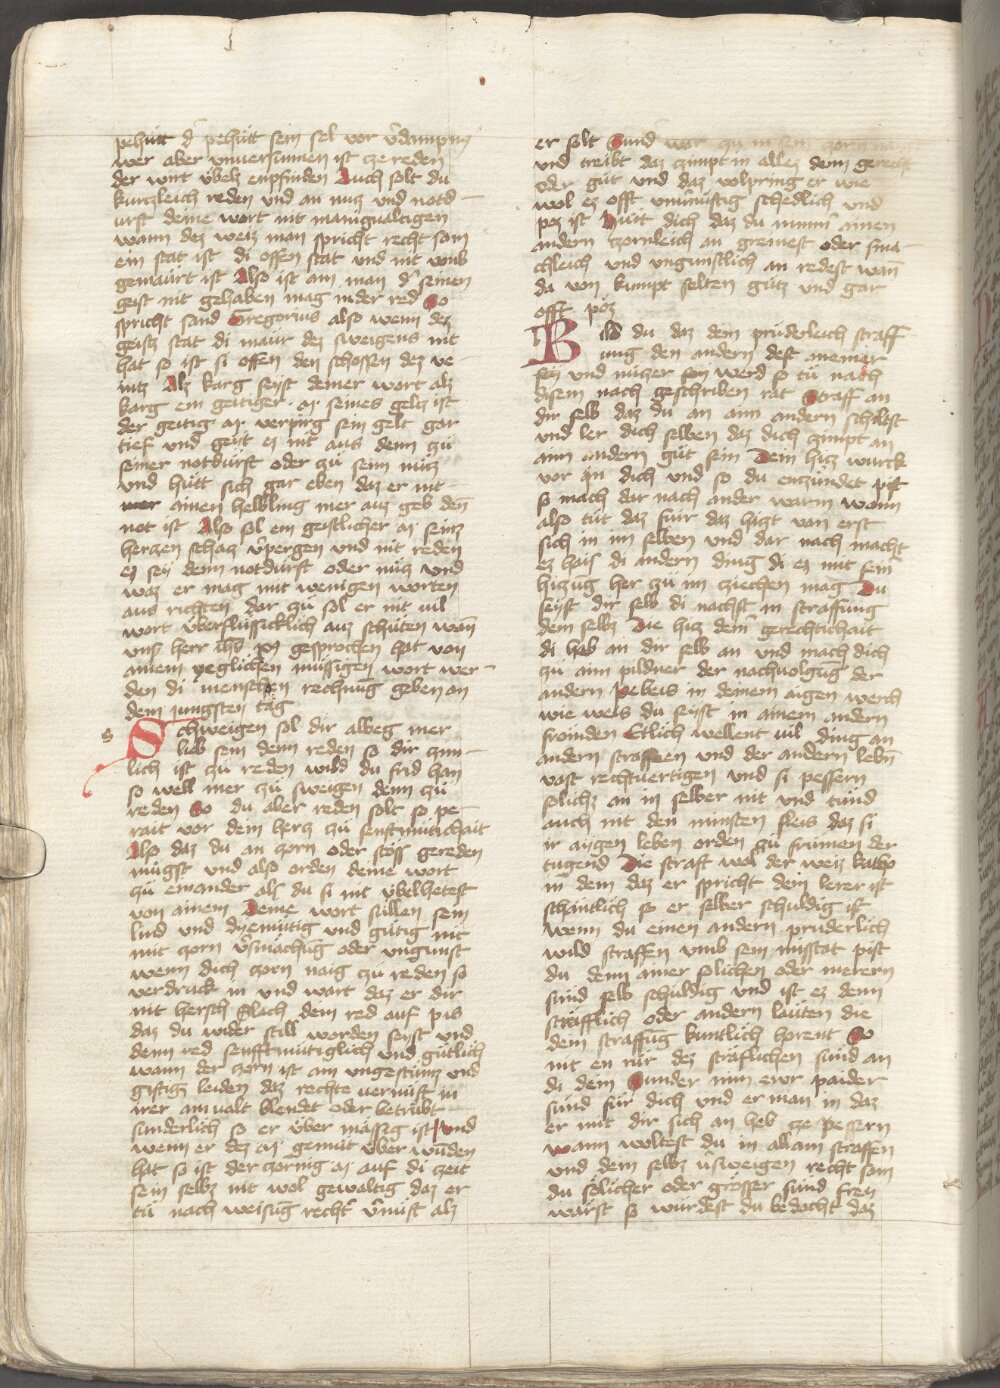 pehütt d' pehütt sein sel vor v̄dampnus
wer aber vnuersunnen ist ze reden
der wirt v̈belz enpfinden Auch solt du
kurczleich reden vnd an nucz vnd notd
urft deine wort nit manigualtigen
wann dez weiz man spricht recht sam
ein stat ist di offen stat vnd nit vmb
gemaürt ist Also ist am man d' seinen
geist nit gehaben mag in der red So
spricht sand Gregorius also wenn dez
geistz stat di maur dez sweigens nit
hat so ist si offen den schossen dez ve
intz Alz karg seyst deiner wort alz
karg ein geitiger seines geltz ist
der geitig verpirg sein gelt gar
tief vnd geit ez nit aus denn zü
seiner notdurft oder zü seim nücz
vnd hütt sich gar eben daz er nit
ainen helbling mer auz geb den̄
not ist Also sol ein geistlicher seins
herczen schacz v̄pergen vnd nit reden
ez sey denn notdurft oder nücz vnd
waz er mag mit wenigen worten
aus richten dar zü sol er nit vil
wort v̈berflüssicklich auz schüten wan̄
vns herr ih̄s gesprochen hat von
ainem yeglichen müssigen wort wer
den di menschen rechnūg geben an
dem jungsten tag
s Schweigen sol dir albeg mer
lieb sein denn reden so dir zim
lich ist zu reden wild du frid han
so well mer zü sweigen denn zü
reden So du aber reden solt so pe
rait vor dein hercz zü senftmütichait
Also daz du an zorn oder stöss gereden
mügst vnd also orden deine wort
zü einander als du si nit v̈belhetest
von ainem Deine wort süllen sein
lind vnd dyemütig vnd gütig nit
mit zorn v̄smachūg oder vngunst
wenn dich zorn naig zu reden so
verdruck in vnd wart daz er dir
nit hersch Slach dein red auf pis
daz du wider still worden seyst vnd
denn red senfftmütiglich vnd gütlich
wann der zorn ist am vngestümz vnd
giftigz leiden daz rechte vernüft in
irer ainualt blendet oder betrübt
sunderlich so er v̈ber mässig ist vnd
wenn er dez gemüt v̈ber wūden
hat so ist der zornig auf di zeit
sein selbz nit wol gewaltig daz er
tü nach weisūg recht' v̄nüft alz
er solt Sund
vnd treibt daz zimpt in allez denn gerecht
oder güt vnd daz volpring er wie
wol ez offt vnuernüftig schedlich vnd
poz ist Hütt dich daz du nimm' ainen
andern zornleich an greinest oder sma
chleich vnd vngunstlich an redest wan̄
da von kumpt selten gütz vnd gar
offt pöz
Bild du daz dem prüderleich straff
ung den andern dest anemer
sey vnd nüczer sey werd so tü nach
disem nach geschriben rat Straff an
dir selb daz du an aim andern schiltest
vnd ler dich selben daz dich zimpt an
aim andern güt sein Dein hicz wurck
vor in dich vnd so du enzündet pist
so mach dar nach ander warm wann
also tüt daz fuir daz hiczt von erst
sich in im selben vnd dar nach macht
ez hais di andern ding di ez mit sein'
hiczūg her zu im ziechen mag Du
seyst dir selb di nachst in straffung
dem selbz Die hicz dein' gerechtichait
di hab an dir selb an vnd mach dich
zü aim pildner der nachuolgūg der
andern Pebeis in deinem aigen werch
wie weis du seyst in ainem andern
froinden Etlich wellent vil ding an
andern straffen vnd der andern lebn̄
vast rechtuertigen vnd si pessern
solichz an in selber nit vnd tünd
auch nit den minsten fleis daz si
ir aygen leben orden zü frümen der
tugend Die straft wol der weiz katho
in dem daz er spricht dem lerer ist
schäntlich so er selber schuldig ist
wenn du einen andern prüderlich
wild straffen vmb sein misstat pist
du denn ainer solichen oder merern
sünd selb schuldig vnd ist ez denn
sträfflich oder andern laüten die
dem straffūg kuntlich horent So
nit en rür dez sträflichen sünd an
di dem Sunder nim ewr paider
sünd für dich vnd er man in daz
er mit dir sich an heb ze pessern
wann woltest du in allain straffen
vnd dein selbz v̄sweigen recht sam
du solicher oder grösser sünd frey
wärst so würdest du bedacht daz